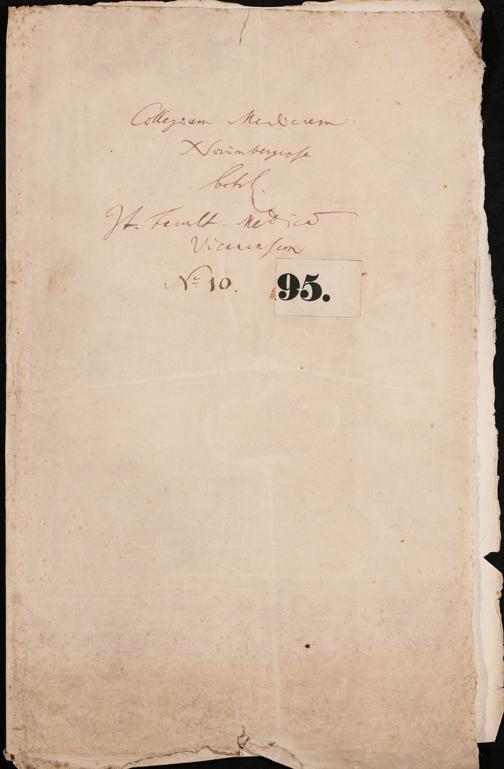 Collegium Medicum
Norimbergense
betrf.
It. Facult. Medica
Vicennsem
No 10.
95.